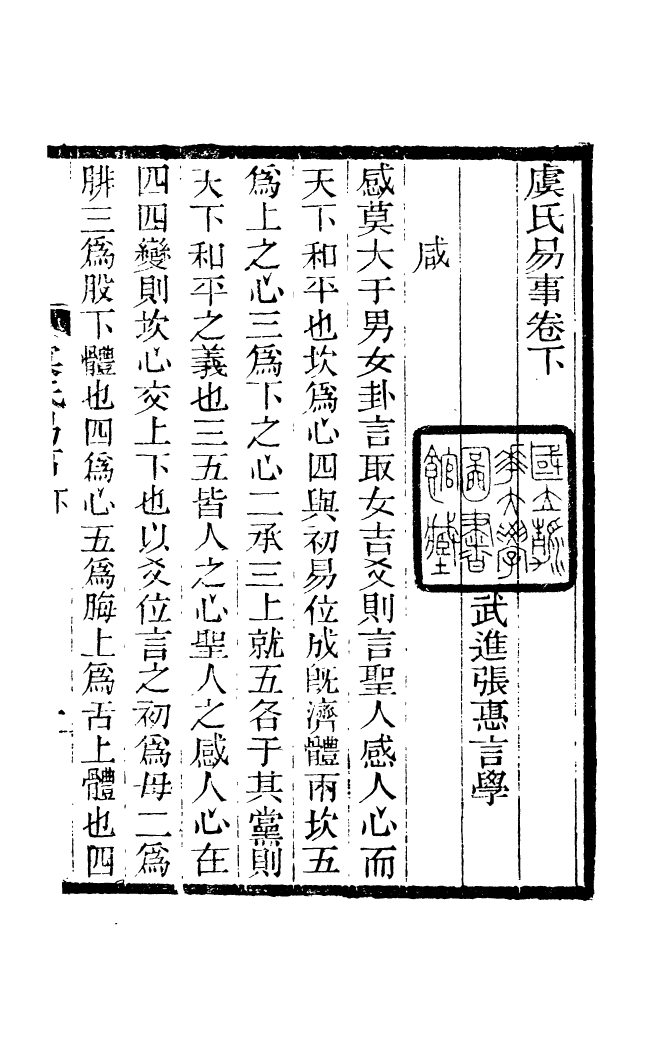 虞氏易事卷下
國立清
華大學
圖書
館藏
武進張惠言學
咸
感莫大于男女卦言取女吉爻則言聖人感人心而
天下和平也坎爲心四與初易位成旣濟體兩坎五
爲上之心三爲下之心二承三上就五各于其黨則
天下和平之義也三五皆人之心聖人之感人心在
四四變則坎心交上下也以爻位言之初爲母二爲
腓三爲股下體也四爲心五爲脢上爲舌上體也四
虞氏易事 下
一